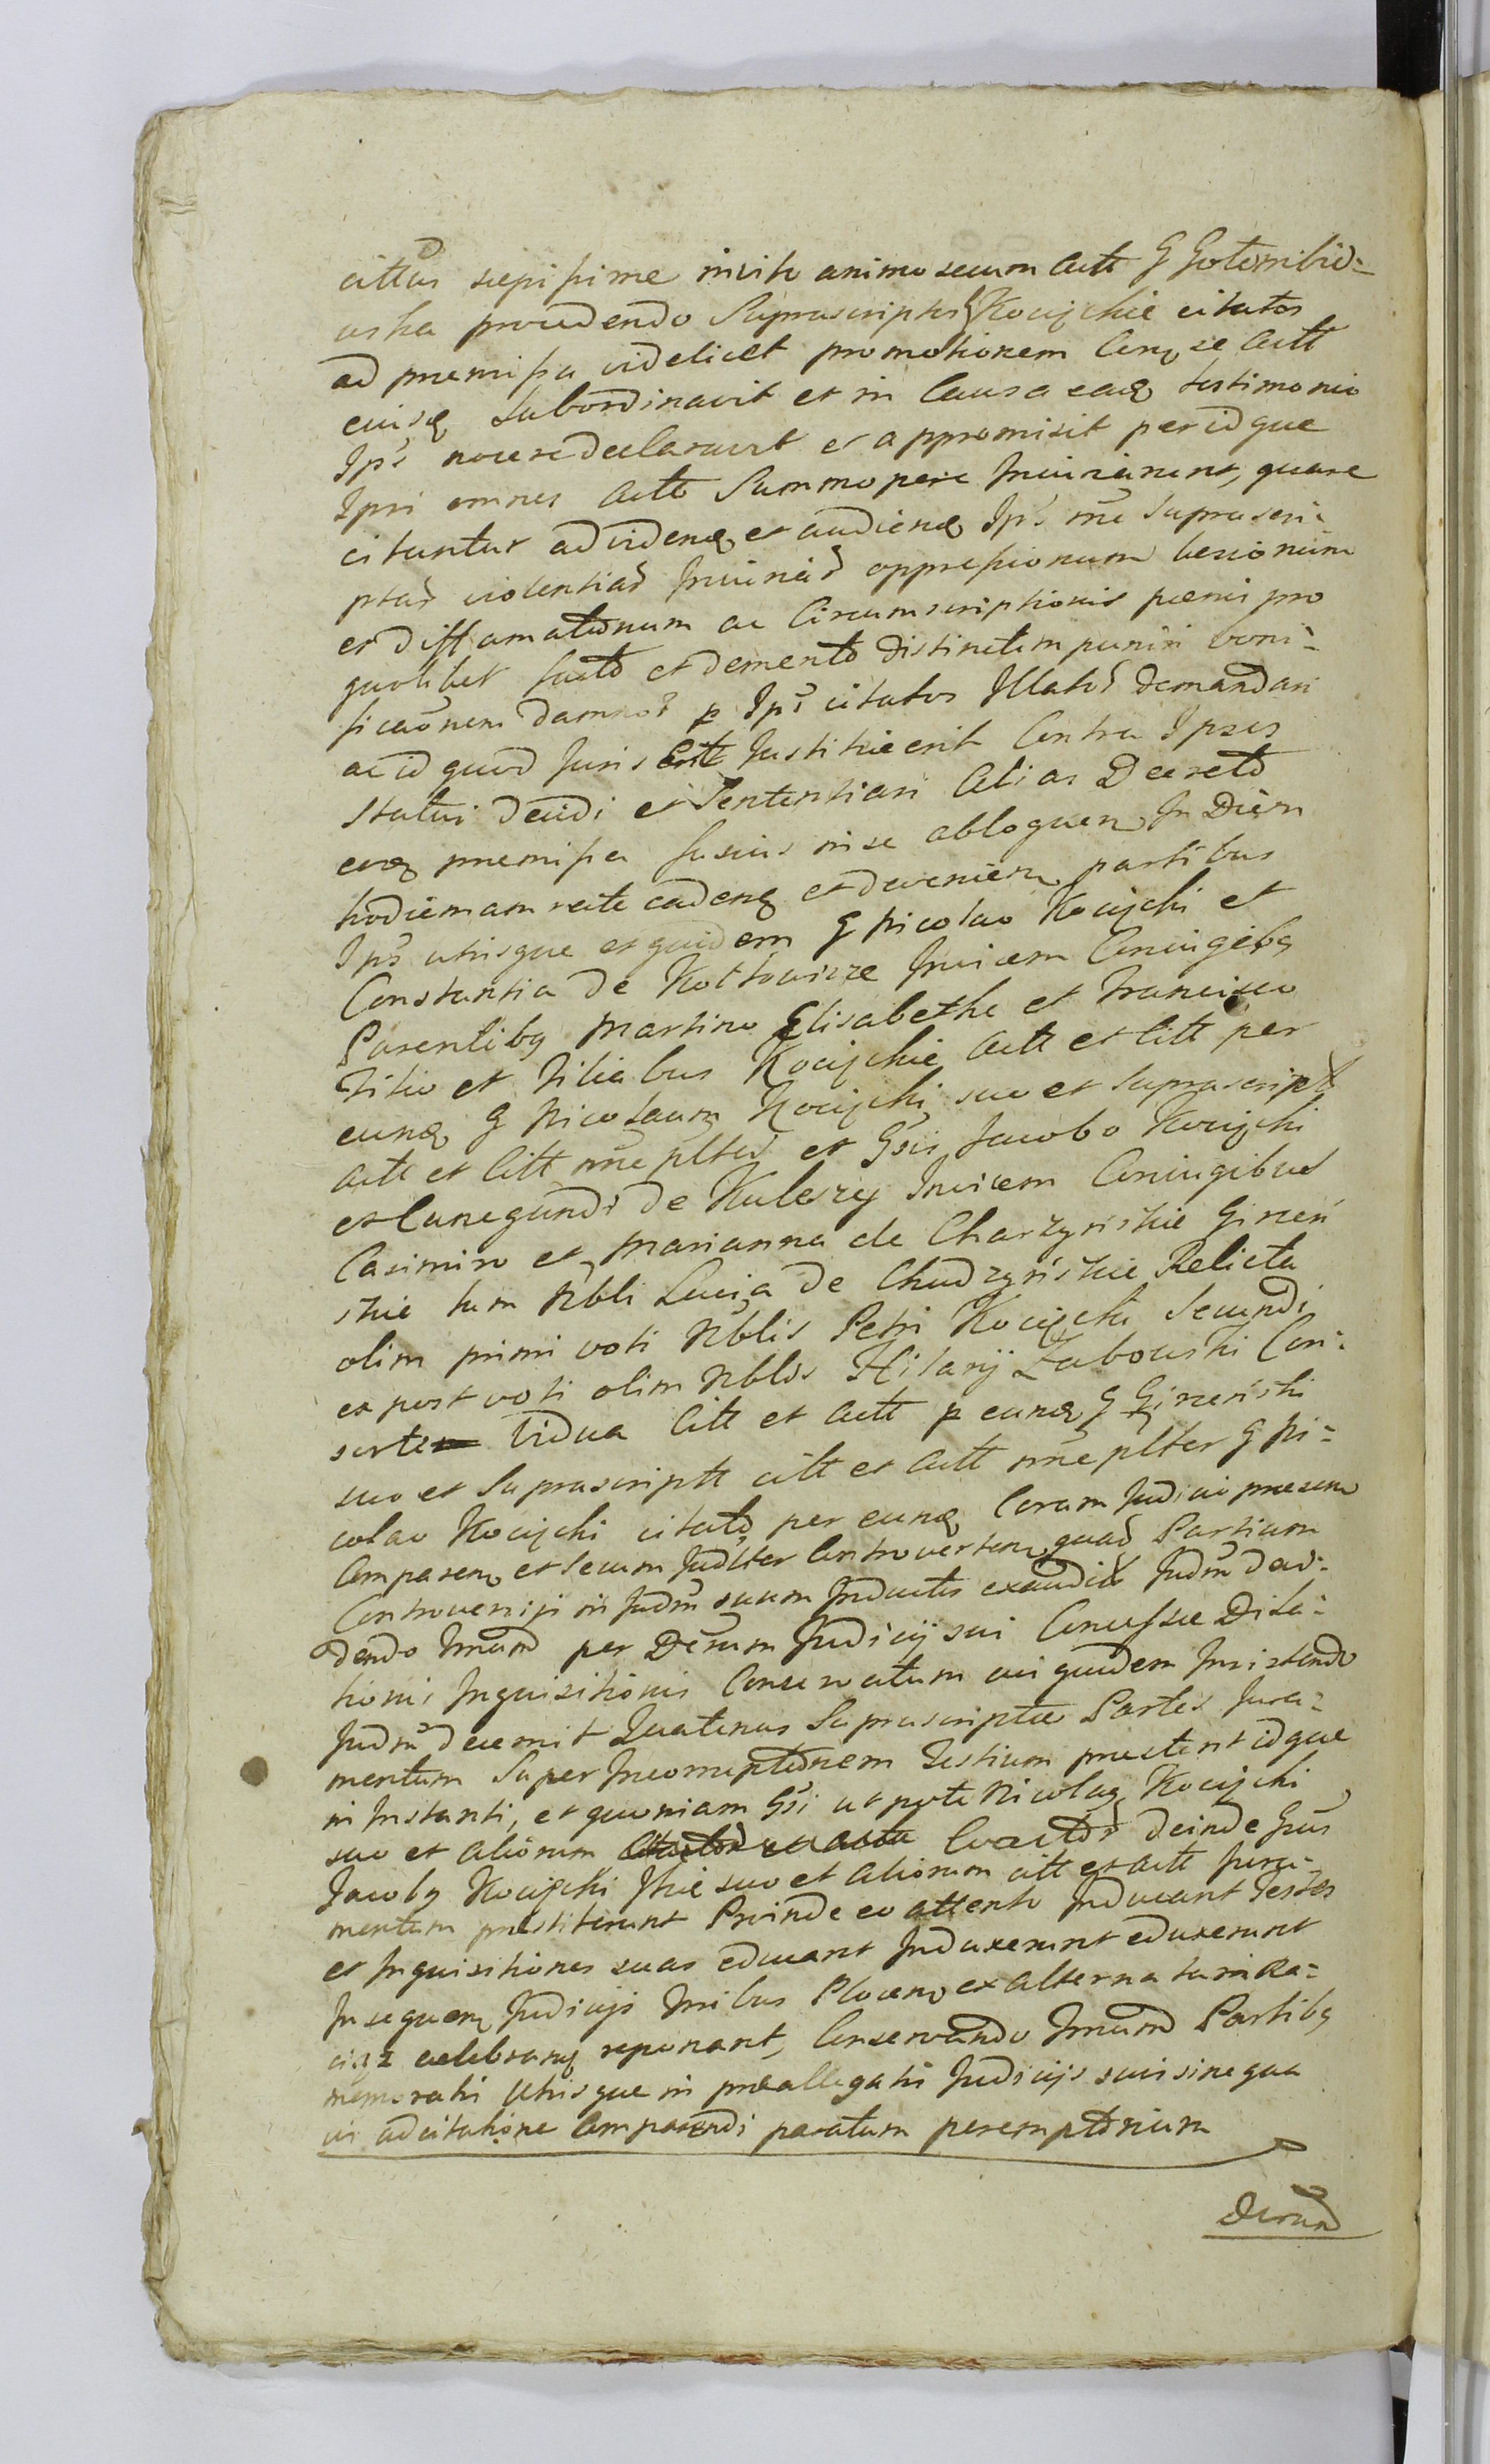 citton sæpissime invito animo secum Actt G Gotembio=
wska procedendo Suprascriptos Kocięckie citatos
ad præmissa videlicet promotionem Conq se Actt
eiusq Subordinavit et in Causa eaq testimonio
Ips nocere declaravit et appromisit peridque
Ipsi omnes Actt Summopere Iniuriarunt, quare
citantur ad videnq et audienq Ips me suprascri=
ptas violentias Iniurias oppressionum lesionum
et diffamationum ac Circumscriptionis pœnis pro
quolibet facto et demerito distinctim puniri boni=
ficationem damnor p Ips citatos Illator demandari
ac id quod Juris Justitiæ erit Contra Ipsos
Statui decidi et Sententiari Alias Decreto
eoq præmissa fusius in se abloquen In Diem
hodiernam recte cadenq et devenien partibus
Ips utrisque et quidem G Nicolao Kocięcki et
Constantia de Kottowicze Invicem Coniugibq
Parentibq Martino Elisabetha et Francisco
Filio et Filiabus Kocięckie Actt et Citt per
eunq G Nicolaum Kocięcki suo et suprascript
Actt et Citt nne pltes et Gsis Jacobo Kocięcki
et Cunegundi de Kuleszy Invicem Coniugibus
Casimiro et Marianna de Charzyńskie Girzeń
skie tum Nbli Lucia de Chudzyńskie Relicta
olim primi voti Nblis Petri Kocięcki Secundi
ex post voti olim Nblis Hilarij Zabowski Con=
sorte Vidua Citt et Actt p eunq G Girzeński
suo et Suprascriptt citt et Actt nne plter G Ni=
colao Kocięcki citato per eunq Coram Judicio præsen
Comparen et Secum Judlter Controverten quar Partium
Controversijs in Judm suum Inductis exauditis Judm deci=
dendo Trnum per Decrum Judicij sui Concessæ Dila=
tionis Inquisitionis Conservatum cui quidem Insistendo
Judm decernit Quatenus Suprascriptæ Partes Jura=
mentum Super Incorruptionem Testium præstent idque
in Instanti, et quoniam Gsi utpote Nicolaq Kocięcki
suo et Aliorum Coactor deinde Gsus
Jacobq Kocięcki suo et Aliorum citt et Actt Jura=
mentum præstiterunt Proinde eo attento Inducant Testes
et Inquisitiones suas educant Induxerunt eduxerunt
Insequen Judicijs Tribus Plocen ex Alternata in Ra=
ciąz celebranq reponant, Conservando Trnum Partibq
memoratis Utrisque in præallegatis Judicijs suis sine qua
vis adcitatione Comparendi paratum peremptorium
Decrum